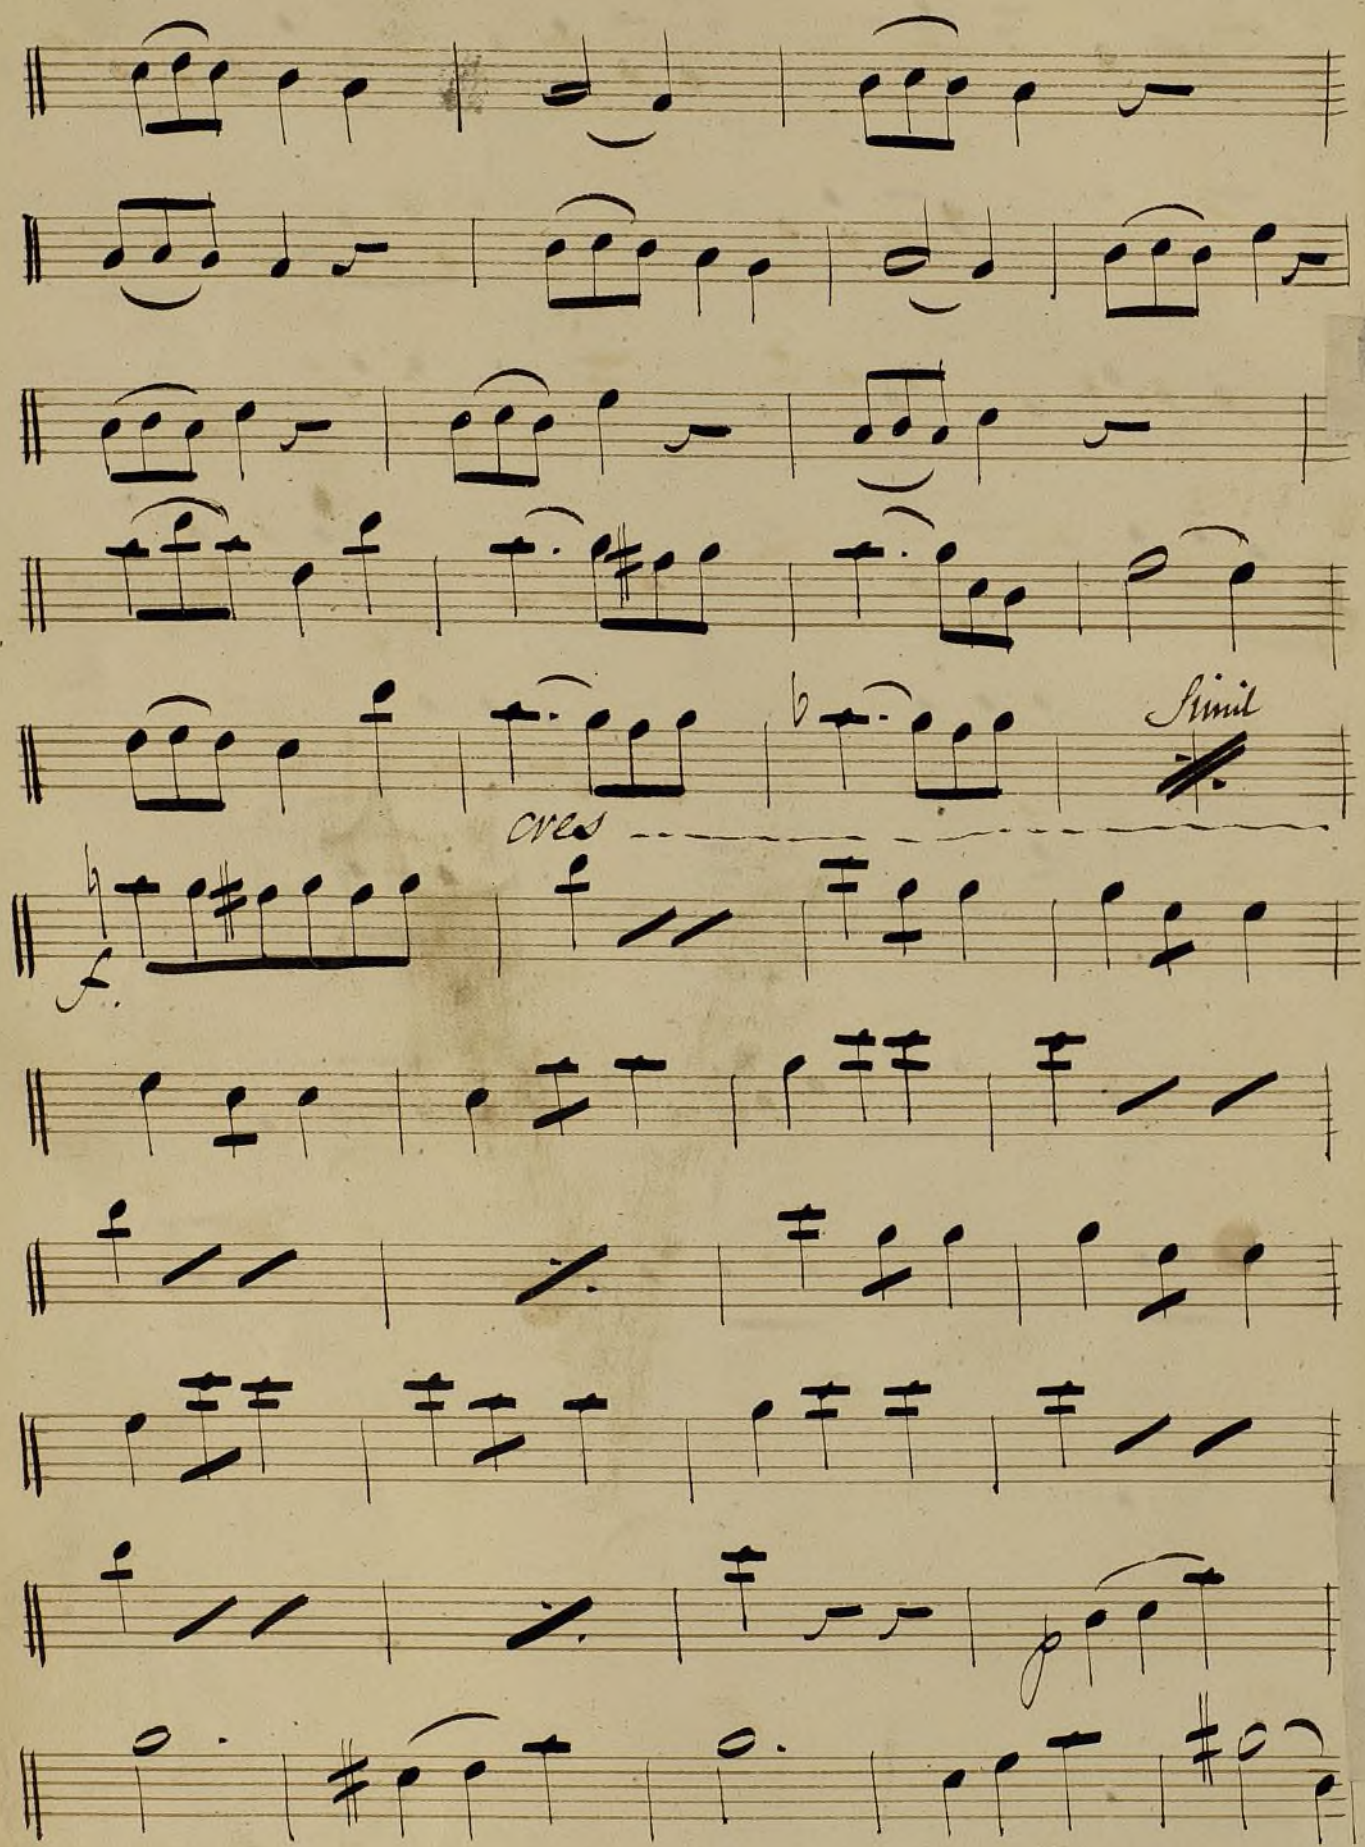 Simil
cres
f.
p